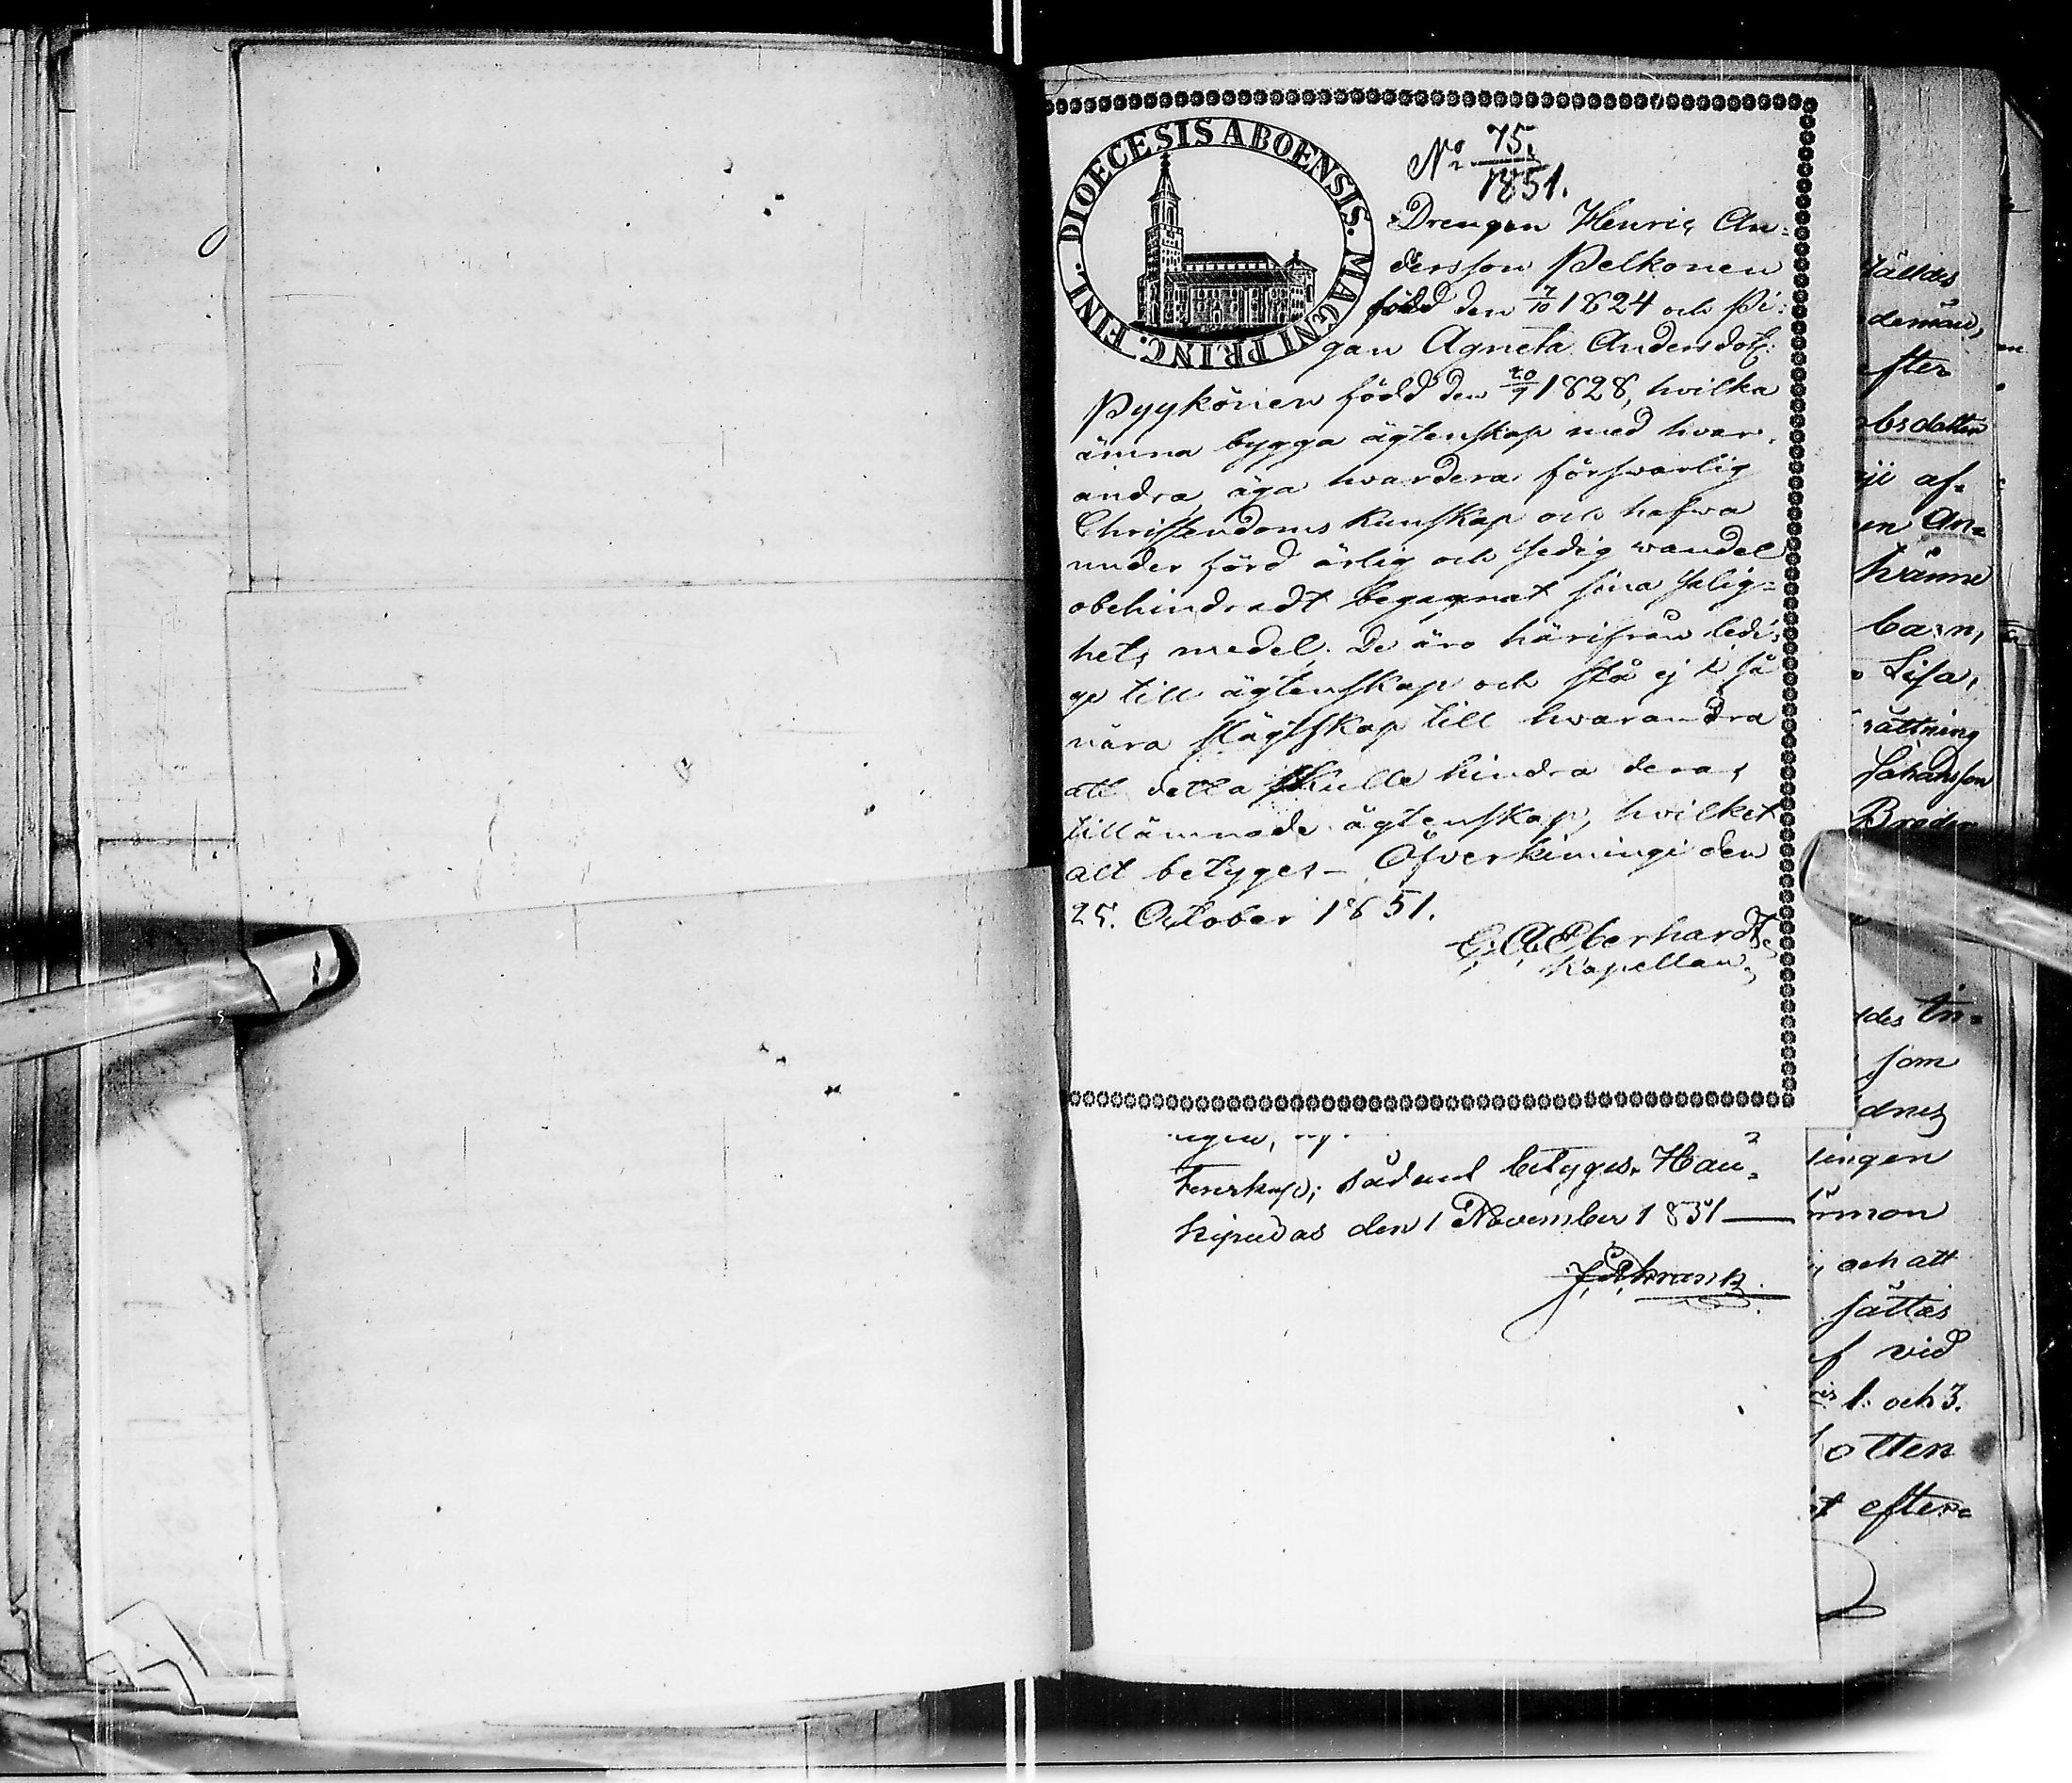 DIOECESIS ABOENSIS. MAGNI PRINC. FINL.
No 75.
1851.
Drengen Henric An-
dersson Pelkonen
född den 7/10 1824 och Pi-
gan Agneta Andersdotr
Pyykönen född den 20/9 1828, hvilka
ämna bygga ägtenskap med hvar-
andra, äga hvardera försvarlig
Christendoms kunskap och hafwa
under förd ärlig och sedig wandel
obehindradt begagnat sina salig-
hets medel. De äro härifrån ledi-
ge till ägtenskap och stå ej i så
nära slägtskap till hvarandra
att detta skulle hindra deras
tillämnade ägtenskap, hvilket
alt betyges – Öfverkiminge den
25. October 1851.
C. A. Eberhardt
Kapellan
tenskap; sådant betyges. Hau-
kipudas den 1 November 1851 —
ställdes
demän,
efter
bsdotter
af-
en An-
barn,
Lisa,
rättning
Johansson
Bröder
som
och att
sättas
vid
1. och 3.
efter-